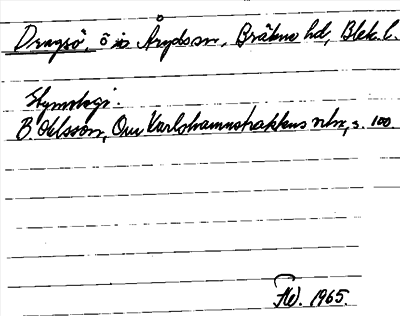 Dragsö, ö i s Åryds sn, Bräkne hd, Blek. l.
Etymologi.
B. Ohlsson, Om Karlshamnstraktens nln, s. 100
1965.